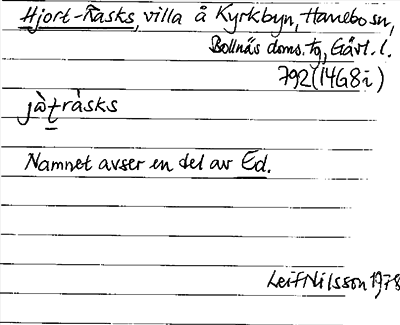 Hjort-Rasks, villa å Kyrkbyn, Hanebo sn,
Bollnäs doms. tg, Gävl. l.
792(14G8i)
jàtràsks
Namnet avser en del av Ed.
Leif Nilsson 1978